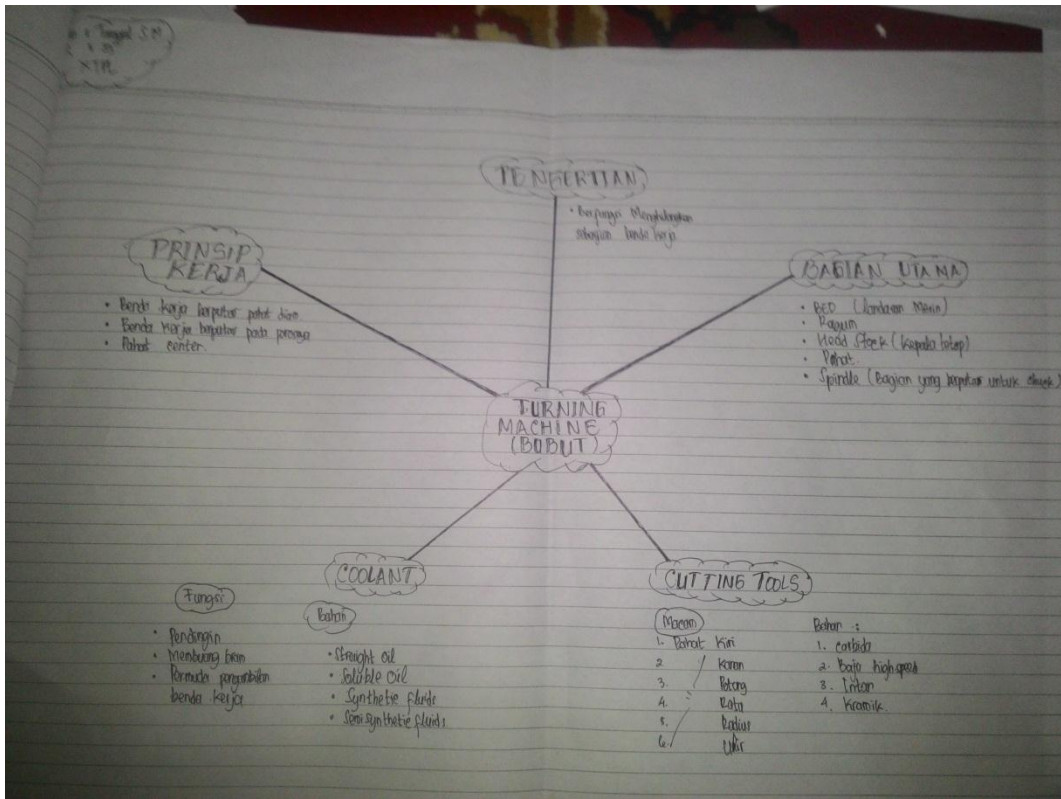 Tunggal S.N
X TPL
PENGERTIAN
• Berfungsi Menghilangkan
sebagian benda kerja
PRINSIP
KERJA
• Benda kerja berputar pahat diam
• Benda kerja berputar pada porosnya
• Pahat center.
BAGIAN UTAMA
• BED (landasan Mesin)
• Ragum
• Head Stock (kepala tetap)
• Pahat.
• Spindle (Bagian yang berputar untuk
TURNING
MACHINE
(BUBUT)
COOLANT
Fungsi
• Pendingin
• Membuang bram
• Permuda pengambilan
benda kerja
Bahan
• Straight Oil
• Soluble Oil
• Synthetic fluids
• Semi synthetic fluids
CUTTING TOOLS
Macam
1. Pahat Kiri
2 Kanan
3. Potong
4. Rata
5. Radius
6. Ulir
Bahan :
1. carbida
2. Baja high speed
3. Intan
4. Kramik.